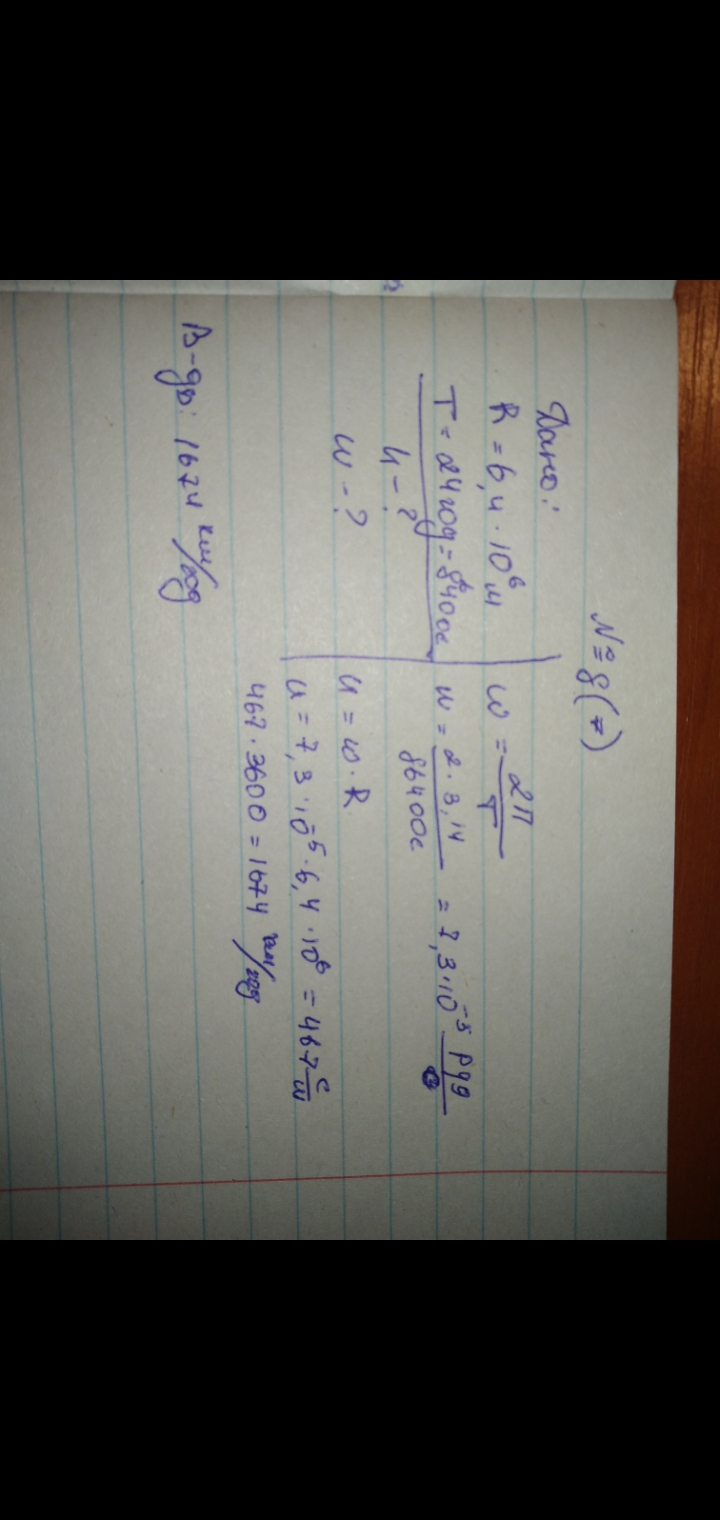 № 8(7)
Дано:
R = 6,4 · 10⁶ м
T = 24 год = 86400с
u - ?
ω - ?
ω = 2π/T
ω = 2 · 3,14 / 86400с = 7,3 · 10⁻⁵ рад/с
u = ω · R
u = 7,3 · 10⁻⁵ · 6,4 · 10⁶ = 467 с/м
467 · 3600 = 1674 км/год
В-дь: 1674 км/год